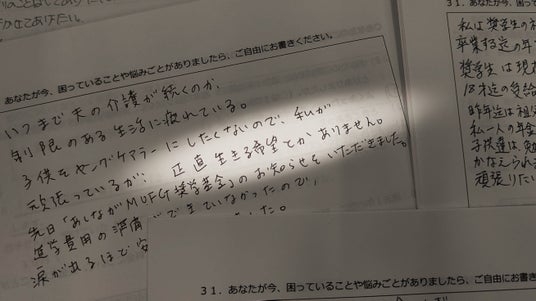 かせてあげたい。
あなたが今、困っていることや悩みごとがありましたら、ご自由にお書きください。
いつまで夫の介護が続くのか、
制限のある生活に疲れている。
子供をヤングケアラーにしたくないので、私が
頑張っているが、正直生きる希望とかありません。
先日「あしながMUFG奨学基金」のお知らせをいただきました。
進学費用の準備ができていなかったので、
涙があるほど安
した。
31. あなたが今、困
私は奨学生の祖
卒業指定の年
奨学生は現在
18才迄の受給
昨年迄は祖父
私一人の年金
子供達は、勉
かなえられ
頑張りたい
31. あなたが今、困っていることや悩みごとがありましたら、ご自由にお書きく